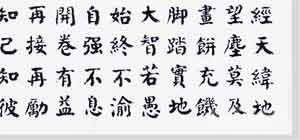 經天緯地
望塵莫及
畫餅充饑
脚踏實地
大智若愚
始終不渝
自强不息
開卷有益
再接再勵
知己知彼